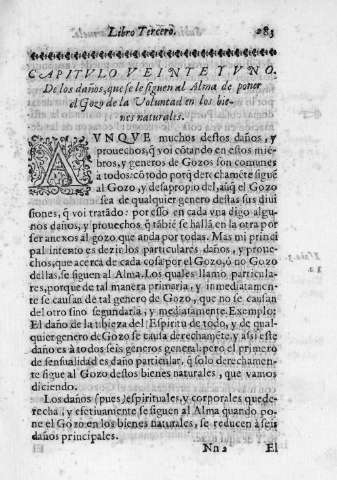 Libro Tercero. 283
CAPITULO VEINTE Y UNO.
De los daños, que se le siguen al Alma de poner
el Gozo de la Voluntad en los bie-
nes naturalis.
AUNQUE muchos destos daños, y
prouechos, q̃ voi cõtando en estos miẽ-
bros, y generos de Gozos son comunes
a todos: cõ todo porq̃ derechamẽte siguẽ
al Gozo, y desapropio del, aũq̃ el Gozo
sea de qualquier genero destas sus diui
siones, q̃ voi tratãdo: por esso en cada vna digo algu-
nos daños, y prouechos, q̃ tãbiẽ se hallã en la otra por
ser anexos al gozo, que anda por todas. Mas mi princi
pal intento es dezir los particulares daños, y proue-
chos, que acerca de cada cosa por el Gozo, ò no Gozo
dellas, se siguen al Alma. Los quales llamo particula-
res, porque de tal manera primaria, y inmediatamen-
te se causan de tal genero de Gozo, que no se causan
del otro sino segundaria, y mediatamente. Exemplo:
El daño de la tibieza del Espiritu de todo, y de qual-
quier genero de Gozo se causa derechamẽte, y assi este
daño es à todos seis generos general: pero el primero
de sensualidad es daño particular, q̃ solo derechamen-
te sigue al Gozo destos bienes naturales, que vamos
diciendo.
Los daños (pues) espirituales, y corporales que de-
recha, y efetiuamente se siguen al Alma quando po-
ne el Gozo en los bienes naturales, se reducen à seis
daños principales.
Nn 2 El